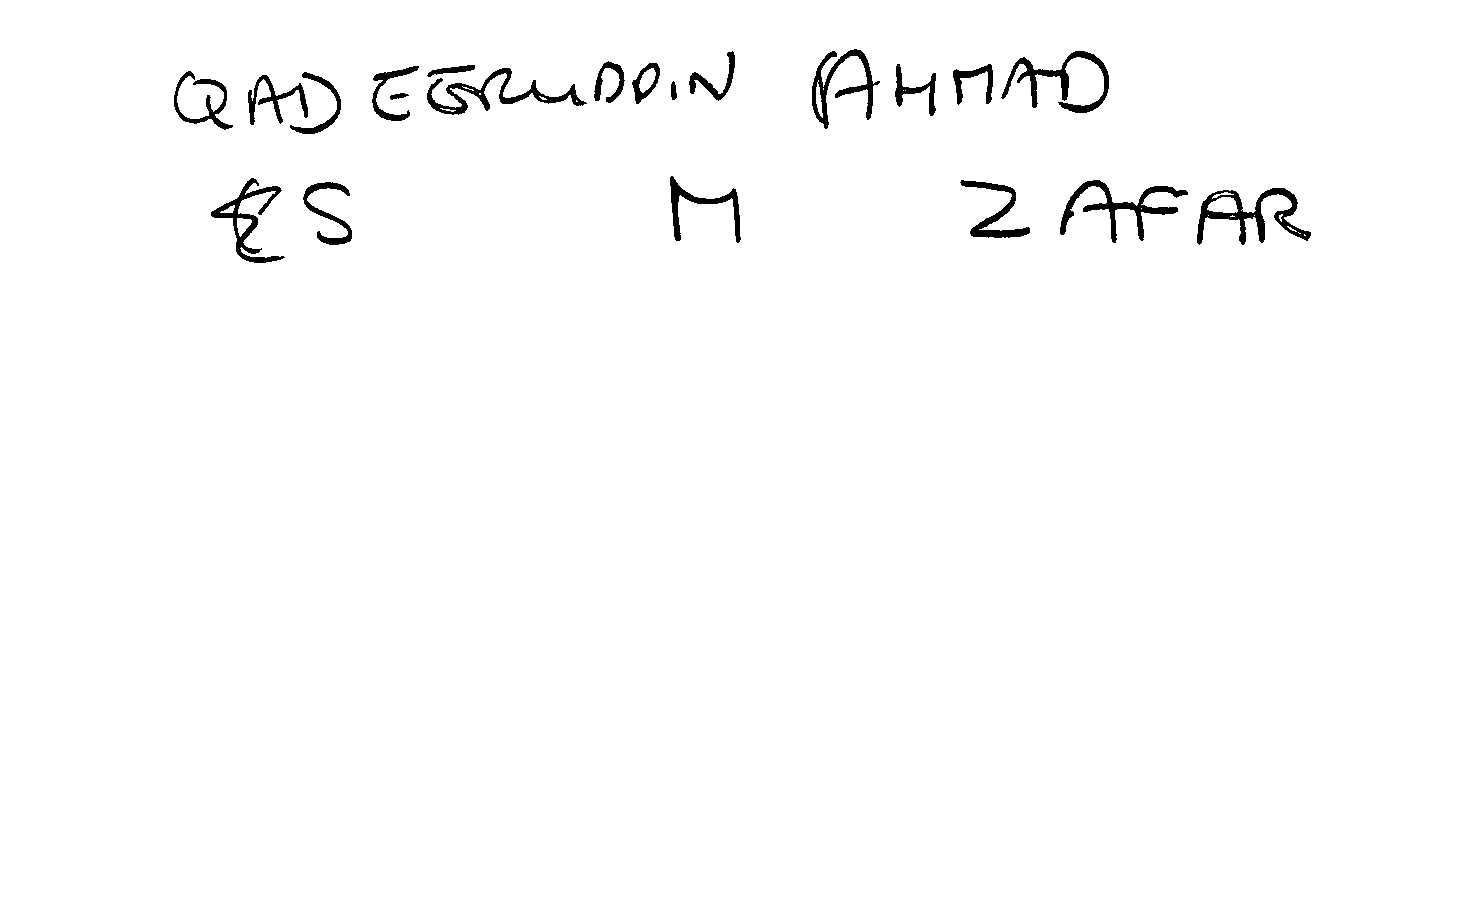 QADEERUDDIN AHMAD
S M ZAFAR